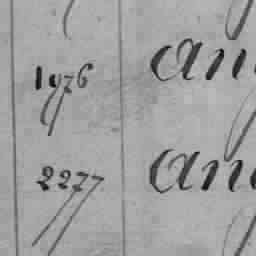 1976 an
2277 an